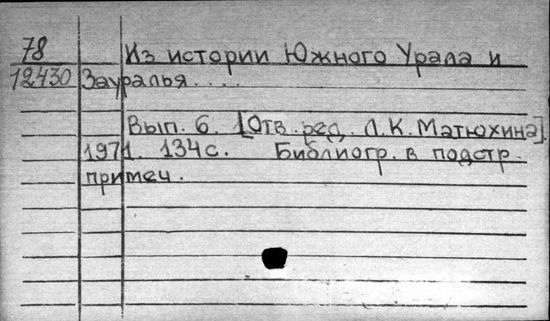 78 Из истории Южного Урала и
12430 Зауралья....
Вып. 6. [Отв. ред. Л.К. Матюхина].
1971. 134с. Библиогр. в подстр.
примеч.